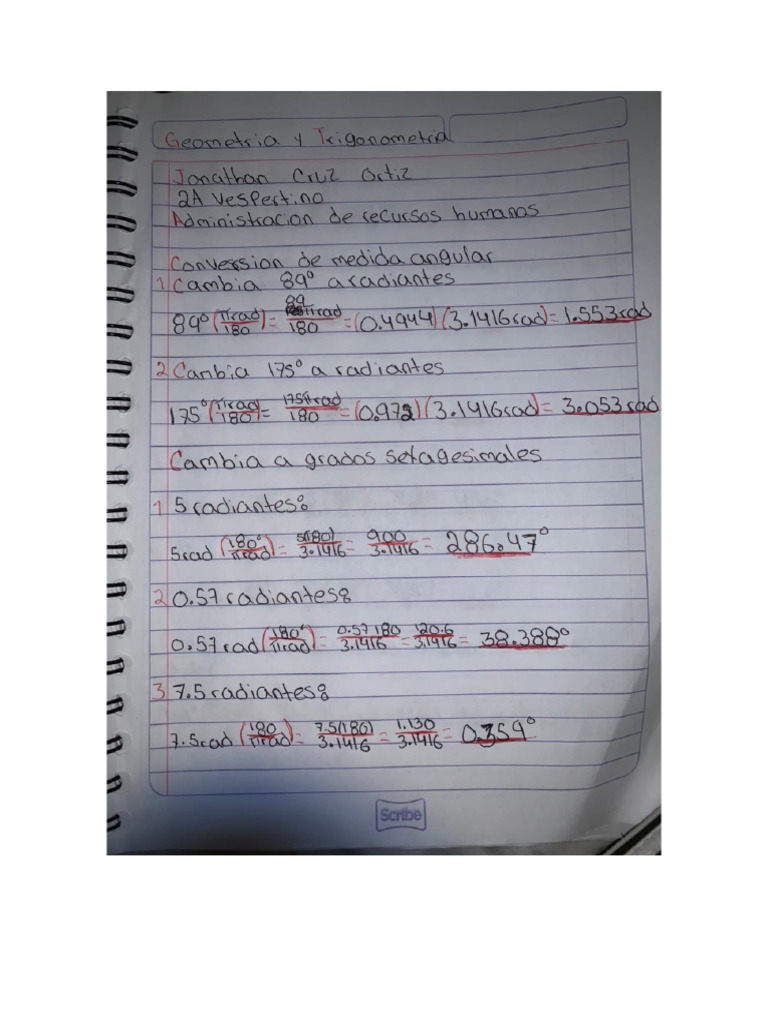 Geometria y Trigonometria
Jonathan Cruz Ortiz
2A Vespertino
Administracion de recursos humanos
Conversion de medida angular
1 Cambia 89° a radiantes
89° (πrad/180) = 89πrad/180 = (0.4944)(3.1416rad) = 1.553rad
2 Canbia 175° a radiantes
175° (πrad/180) = 175πrad/180 = (0.972)(3.1416rad) = 3.053rad
Cambia a grados sexagesimales
1 5 radiantes:
5rad (180°/πrad) = 5(180)/3.1416 = 900/3.1416 = 286.47°
2 0.57 radiantes:
0.57 rad (180°/πrad) = 0.57 180/3.1416 = 120.6/3.1416 = 38.388°
3 7.5 radiantes:
7.5rad (180/πrad) = 7.5(180)/3.1416 = 1.130/3.1416 = 0.359°
Scribe